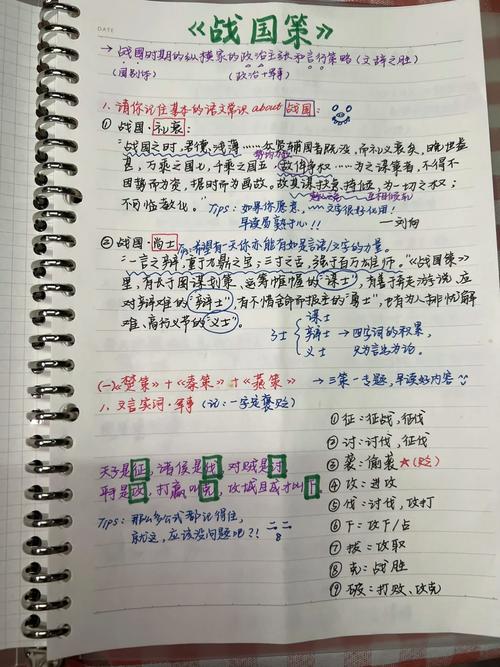 DATE
《战国策》
→ 战国时期的纵横家的政治主张和言行策略 (文辞之胜)
(国别体) (政治+军事)
1. 请你记住基本的语文常识 about 战国:
① 战国·礼衰:
"战国之时,君德浅薄……众贤辅国者既没,而礼义衰矣,晚世益
甚,万乘之国七,千乘之国五,敌侔争权……为之谋策者,不得不
因势而为资,据时而为画,故其谋扶急持倾,为一切之权;
不可临教化。" Tips: 如果你愿意,文字很好化用!
早读局熟于心!! ——刘向
② 战国·尚士 希望有一天你亦能有如是言语/文字的力量。
"一言之辩,重于九鼎之宝;三寸之舌,强于百万雄师。"《战国策》
里,有长于国谋划策、运筹帷幄的"谋士",有善于奔走游说、应
对辩难的"辩士",有不惜舍命而报主的"勇士",也有为人排忧解
难、高行义节的"义士"。
士 谋士
辩士 → 四字词的积累,
义士 只为言志为论。
(一)《楚策》+《秦策》+《燕策》 → 三策一主题,早读好内容
1. 文言实词·军事 (记:一字见褒贬)
天子是征,诸侯是伐,对贼是讨
时是攻,打赢叫克,攻城且成才叫下
Tips: 那么多公式都记得住,
就这,应该没问题吧?!
① 征:征战,征伐
② 讨:讨伐,征伐
③ 袭:偷袭 ★(贬)
④ 攻:进攻
⑤ 伐:讨伐,攻打
⑥ 下:攻下/占
⑦ 拔:攻取
⑧ 克:战胜
⑨ 破:打败、攻克